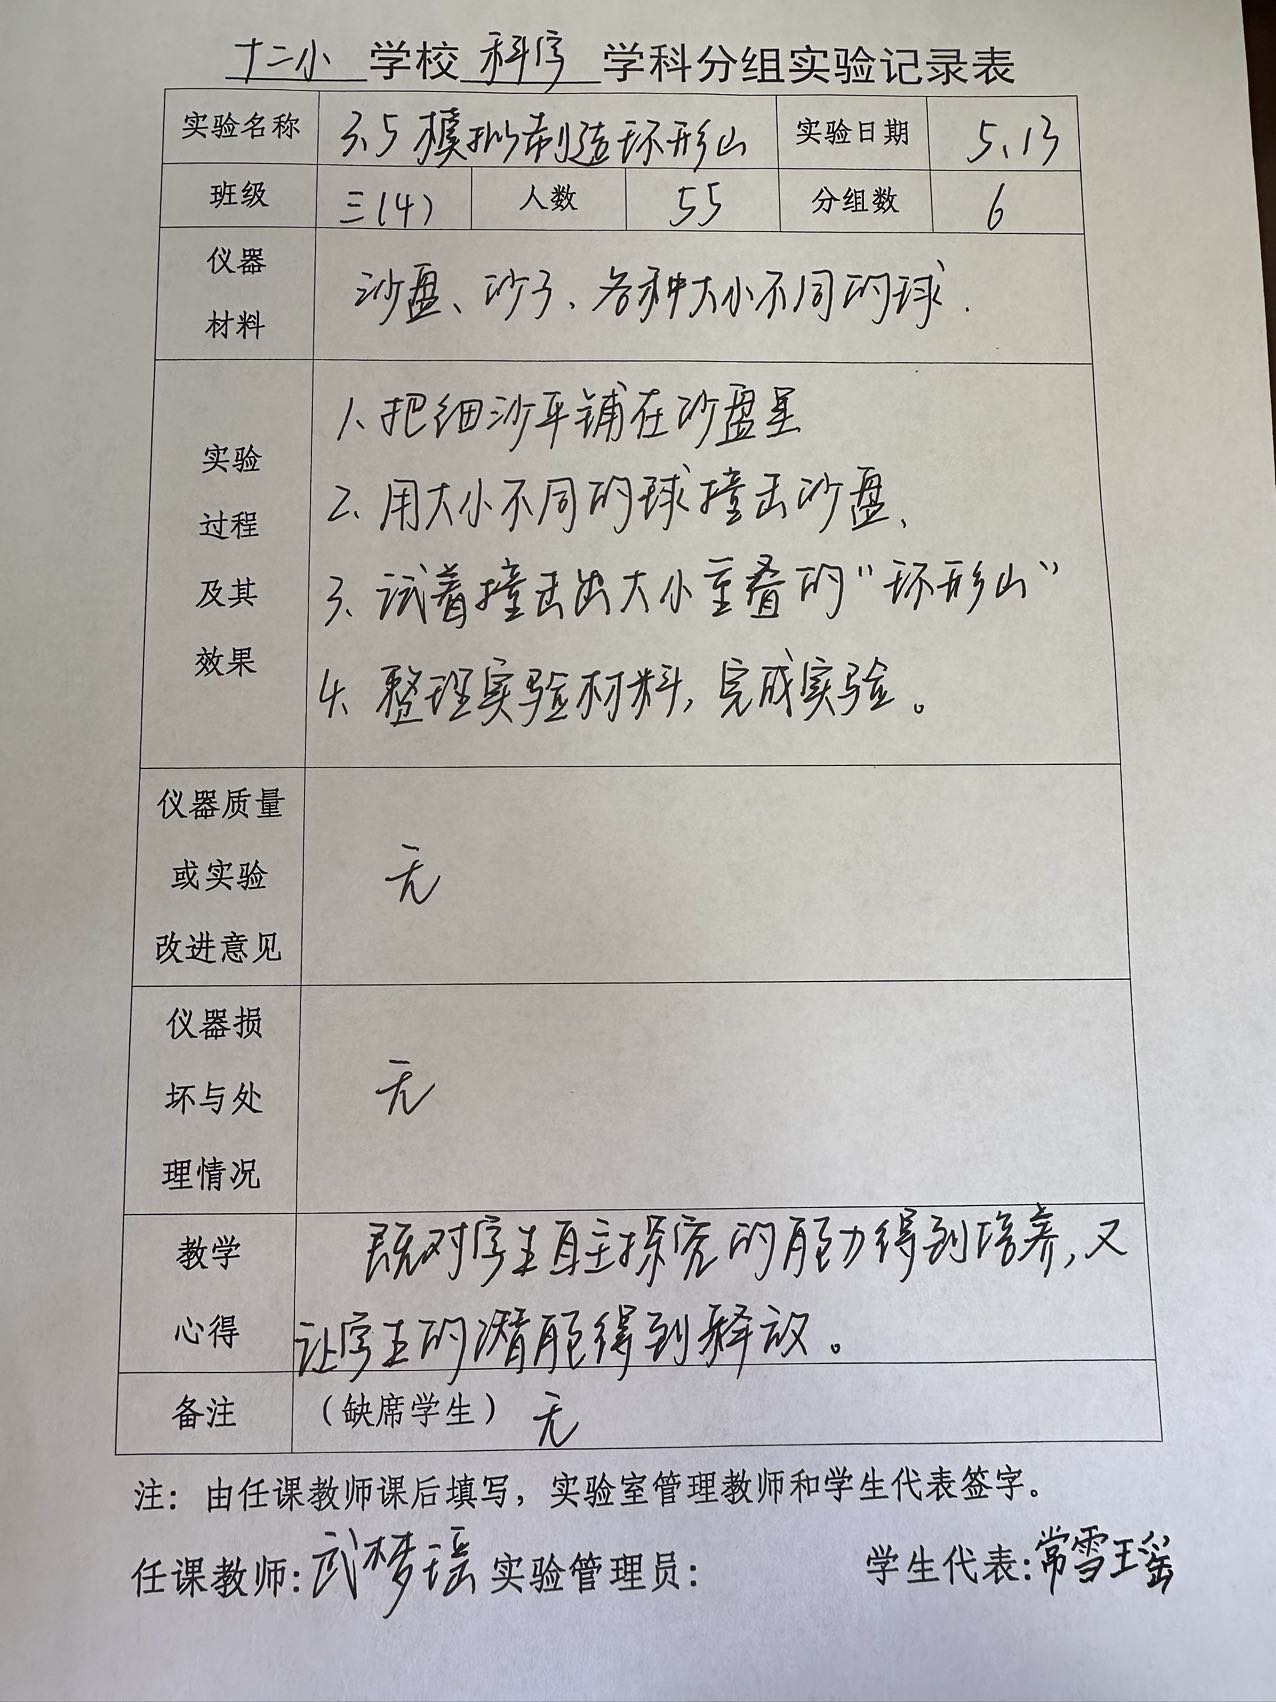 十二小 学校 科学 学科分组实验记录表
实验名称 3.5模拟制造环形山 实验日期 5.13
班级 三(4) 人数 55 分组数 6
仪器
材料
沙盘、沙子、各种大小不同的球.
实验
过程
及其
效果
1、把细沙平铺在沙盘里
2、用大小不同的球撞击沙盘、
3、试着撞击出大小重叠的“环形山”
4、整理实验材料,完成实验。
仪器质量
或实验
改进意见
无
仪器损
坏与处
理情况
无
教学
心得
既对学生自主探究的能力得到培养,又
让学生的潜能得到释放。
备注 (缺席学生) 无
注：由任课教师课后填写，实验室管理教师和学生代表签字。
任课教师:武梦瑶 实验管理员: 学生代表:常雪瑶